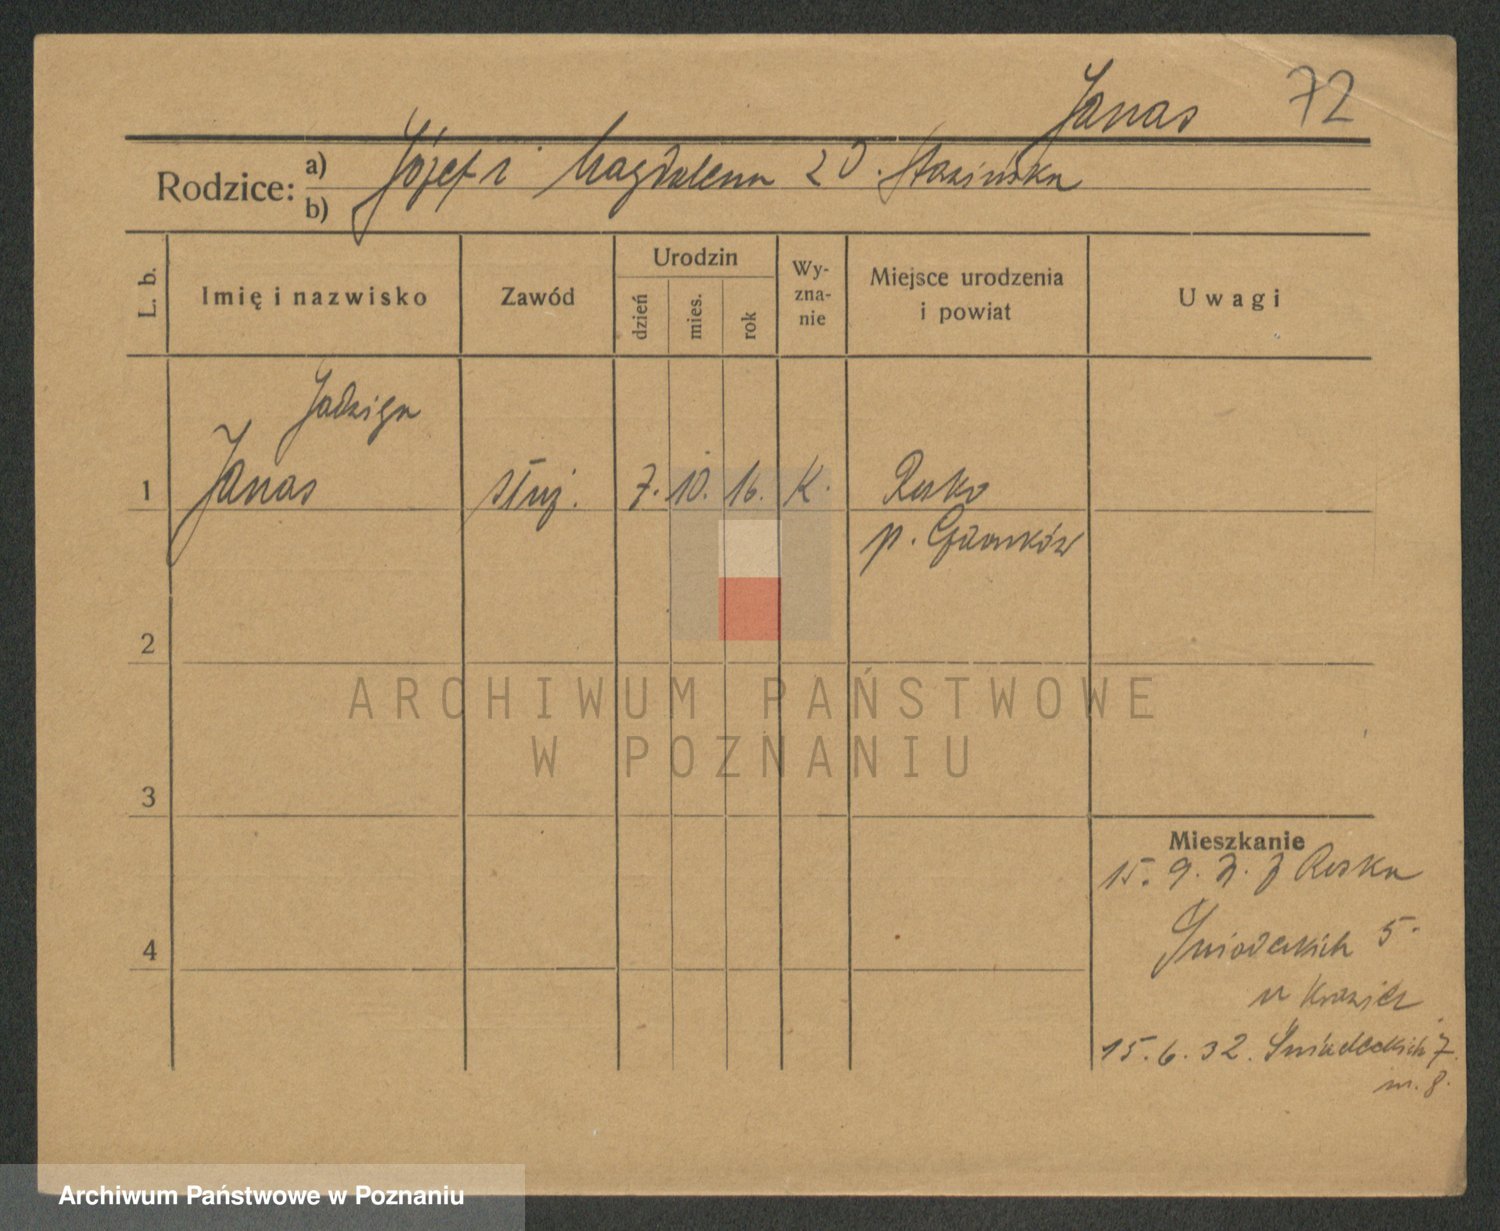 Janas 72
Rodzice: a) Józef i Magdalena z d.
b)
L. b. Imię i nazwisko Zawód Urodzin dzień mies. rok Wy-zna-nie Miejsce urodzenia i powiat Uwagi
Jadwiga
1 Janas służ. 7. 10. 16. K. Rosko
p. Czarnków
2
ARCHIWUM PAŃSTWOWE
W POZNANIU
3
Mieszkanie
15. 9. z Roska
4 Śniadeckich 5
u
15. 6. 32. Śniadeckich 7.
m. 8.
Archiwum Państwowe w Poznaniu